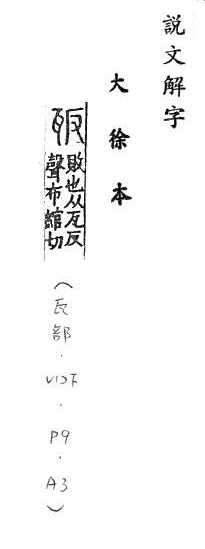 説文解字
大徐本
瓪
敗也从瓦反
聲布綰切
（瓦部．V12下．P9．A3）